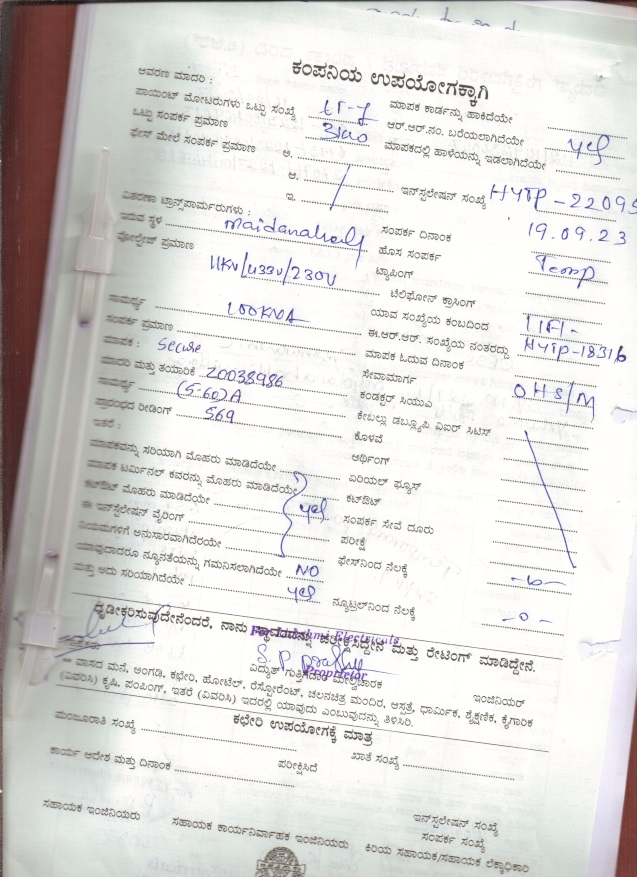 ಕಂಪನಿಯ ಉಪಯೋಗಕ್ಕಾಗಿ
ಆವರಣ ಮಾದರಿ :
ಮಾಪಕ ಕಾರ್ಡನ್ನು ಹಾಕಿದೆಯೇ
ಪಾಯಿಂಟ್ ಮೋಟರುಗಳು ಒಟ್ಟು ಸಂಖ್ಯೆ LT-7
ಆರ್.ಆರ್.ನಂ. ಬರೆಯಲಾಗಿದೆಯೇ yes
ಒಟ್ಟು ಸಂಪರ್ಕ ಪ್ರಮಾಣ
ಮಾಪಕದಲ್ಲಿ ಹಾಳೆಯನ್ನು ಇಡಲಾಗಿದೆಯೇ
ಫೇಸ್ ಮೇಲೆ ಸಂಪರ್ಕ ಪ್ರಮಾಣ ಅ.
ಆ.
ಇ.
ಇನ್‌ಸ್ಟಲೇಷನ್ ಸಂಖ್ಯೆ HYTP-22095
ವಿತರಣಾ ಟ್ರಾನ್ಸ್‌ಪಾರ್ಮರುಗಳು :
ಸಂಪರ್ಕ ದಿನಾಂಕ 19.09.23
ಇರುವ ಸ್ಥಳ Maidanahally
ಹೊಸ ಸಂಪರ್ಕ Temp
ವೋಲ್ಟೇಜ್ ಪ್ರಮಾಣ 11KV/433V/230V
ಟ್ಯಾಪಿಂಗ್
ಟೆಲಿಫೋನ್ ಕ್ರಾಸಿಂಗ್
ಸಾಮರ್ಥ್ಯ 100KVA
ಯಾವ ಸಂಖ್ಯೆಯ ಕಂಬದಿಂದ
ಸಂಪರ್ಕ ಪ್ರಮಾಣ
ಈ.ಆರ್.ಆರ್. ಸಂಖ್ಯೆಯ ನಂತರದ್ದು HYTP-18316
ಮಾಪಕ : Secure
ಮಾಪಕ ಓದುವ ದಿನಾಂಕ
ಮಾದರಿ ಮತ್ತು ತಯಾರಿಕೆ 20038986
ಸೇವಾಮಾರ್ಗ OHS/M
ಸಾಮರ್ಥ್ಯ (5-60)A
ಕಂಡಕ್ಟರ್ ಸಿಯುಎ
ಪ್ರಾರಂಭದ ರೀಡಿಂಗ್ 569
ಕೇಬಲ್ಲು ಡಬ್ಲ್ಯೂಪಿ ಏಐರ್ ಸಿಟಿಸ್
ಇತರೆ :
ಕೊಳವೆ
ಅರ್ಥಿಂಗ್
ಮಾಪಕವನ್ನು ಸರಿಯಾಗಿ ಮೊಹರು ಮಾಡಿದೆಯೇ
ಏರಿಯಲ್ ಫ್ಯೂಸ್
ಮಾಪಕ ಟರ್ಮಿನಲ್ ಕವರನ್ನು ಮೊಹರು ಮಾಡಿದೆಯೇ
ಕಟ್‌ಔಟ್
ಕಟ್‌ಔಟ್ ಮೊಹರು ಮಾಡಿದೆಯೇ yes
ಸಂಪರ್ಕ ಸೇವೆ ದೂರು
ಈ ಇನ್‌ಸ್ಟಲೇಷನ್ ವೈರಿಂಗ್
ಪರೀಕ್ಷೆ
ನಿಯಮಗಳಿಗೆ ಅನುಸಾರವಾಗಿದೆಯೇ
ಫೇಸ್‌ನಿಂದ ನೆಲಕ್ಕೆ
ಯಾವುದಾದರೂ ನ್ಯೂನತೆಯನ್ನು ಗಮನಿಸಲಾಗಿದೆಯೇ NO
ಮತ್ತು ಅದು ಸರಿಯಾಗಿದೆಯೇ yes
ನ್ಯೂಟ್ರಲ್‌ನಿಂದ ನೆಲಕ್ಕೆ -0-
ಧೃಡೀಕರಿಸುವುದೇನೆಂದರೆ, ನಾನು ಪರೀಕ್ಷಿಸಿದ್ದೇನೆ ಮತ್ತು ರೇಟಿಂಗ್ ಮಾಡಿದ್ದೇನೆ.
Electricals
Proprietor
ವಿದ್ಯುತ್ ಗುತ್ತಿಗೆದಾರ ಮೇಲ್ವಿಚಾರಕ
ಇಂಜಿನಿಯರ್
** ವಾಸದ ಮನೆ, ಅಂಗಡಿ, ಕಛೇರಿ, ಹೋಟೆಲ್, ರೆಸ್ಟೋರೆಂಟ್, ಚಲನಚಿತ್ರ ಮಂದಿರ, ಆಸ್ಪತ್ರೆ, ಧಾರ್ಮಿಕ, ಶೈಕ್ಷಣಿಕ, ಕೈಗಾರಿಕ
(ವಿವರಿಸಿ) ಕೃಷಿ, ಪಂಪಿಂಗ್, ಇತರೆ (ವಿವರಿಸಿ) ಇದರಲ್ಲಿ ಯಾವುದು ಎಂಬುವುದನ್ನು ತಿಳಿಸಿರಿ.
ಕಛೇರಿ ಉಪಯೋಗಕ್ಕೆ ಮಾತ್ರ
ಮಂಜೂರಾತಿ ಸಂಖ್ಯೆ
ಖಾತೆ ಸಂಖ್ಯೆ
ಕಾರ್ಯ ಆದೇಶ ಮತ್ತು ದಿನಾಂಕ
ಪರೀಕ್ಷಿಸಿದೆ
ಇನ್‌ಸ್ಟಲೇಷನ್ ಸಂಖ್ಯೆ
ಸಂಪರ್ಕ ಸಂಖ್ಯೆ
ಸಹಾಯಕ ಇಂಜಿನಿಯರು
ಸಹಾಯಕ ಕಾರ್ಯನಿರ್ವಾಹಕ ಇಂಜಿನಿಯರು
ಕಿರಿಯ ಸಹಾಯಕ/ಸಹಾಯಕ ಲೆಕ್ಕಾಧಿಕಾರಿ